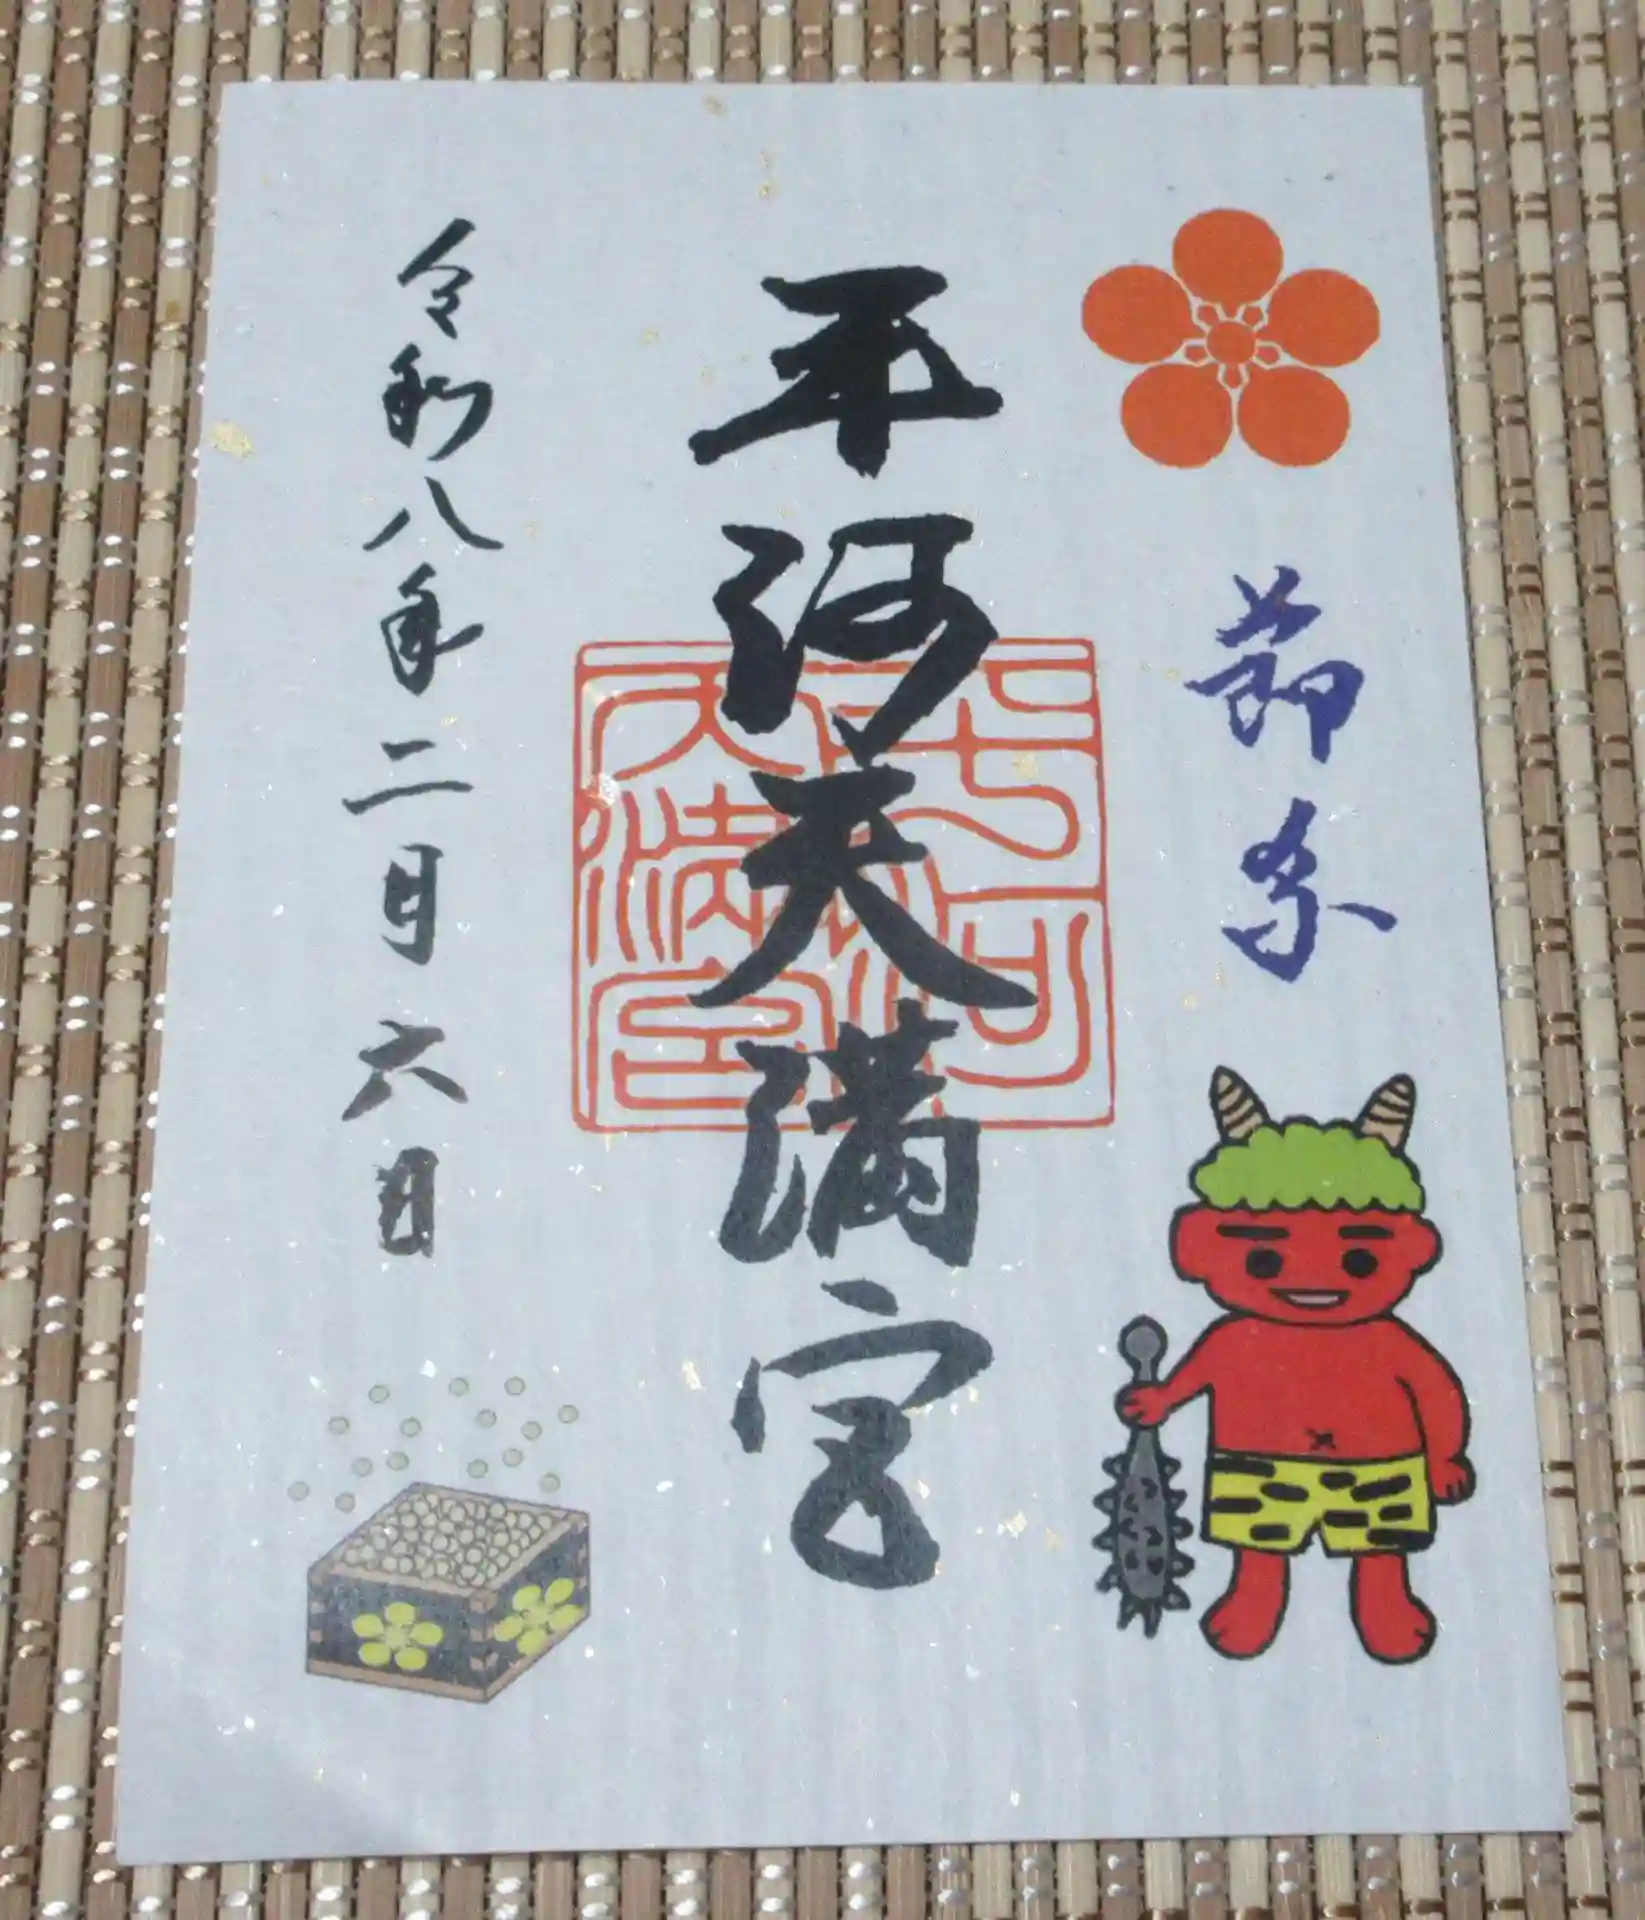 節祭
平河天満宮
平河天満宮
令和八年二月六日